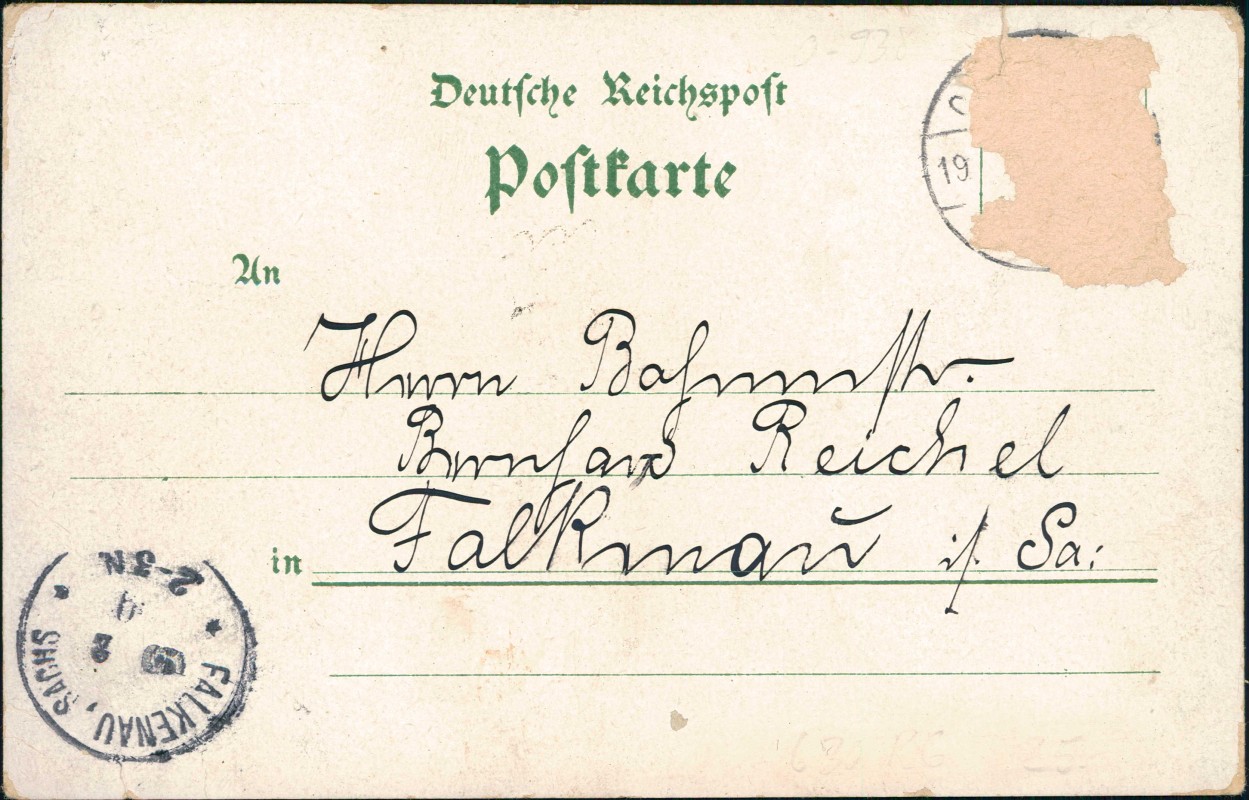 Deutsche Reichspost
Postkarte
19
An
Herrn Bahnmstr.
Bernhard Reichel
in Falkenau i/ Sa:
2-3N
FALKENAU, SACHS